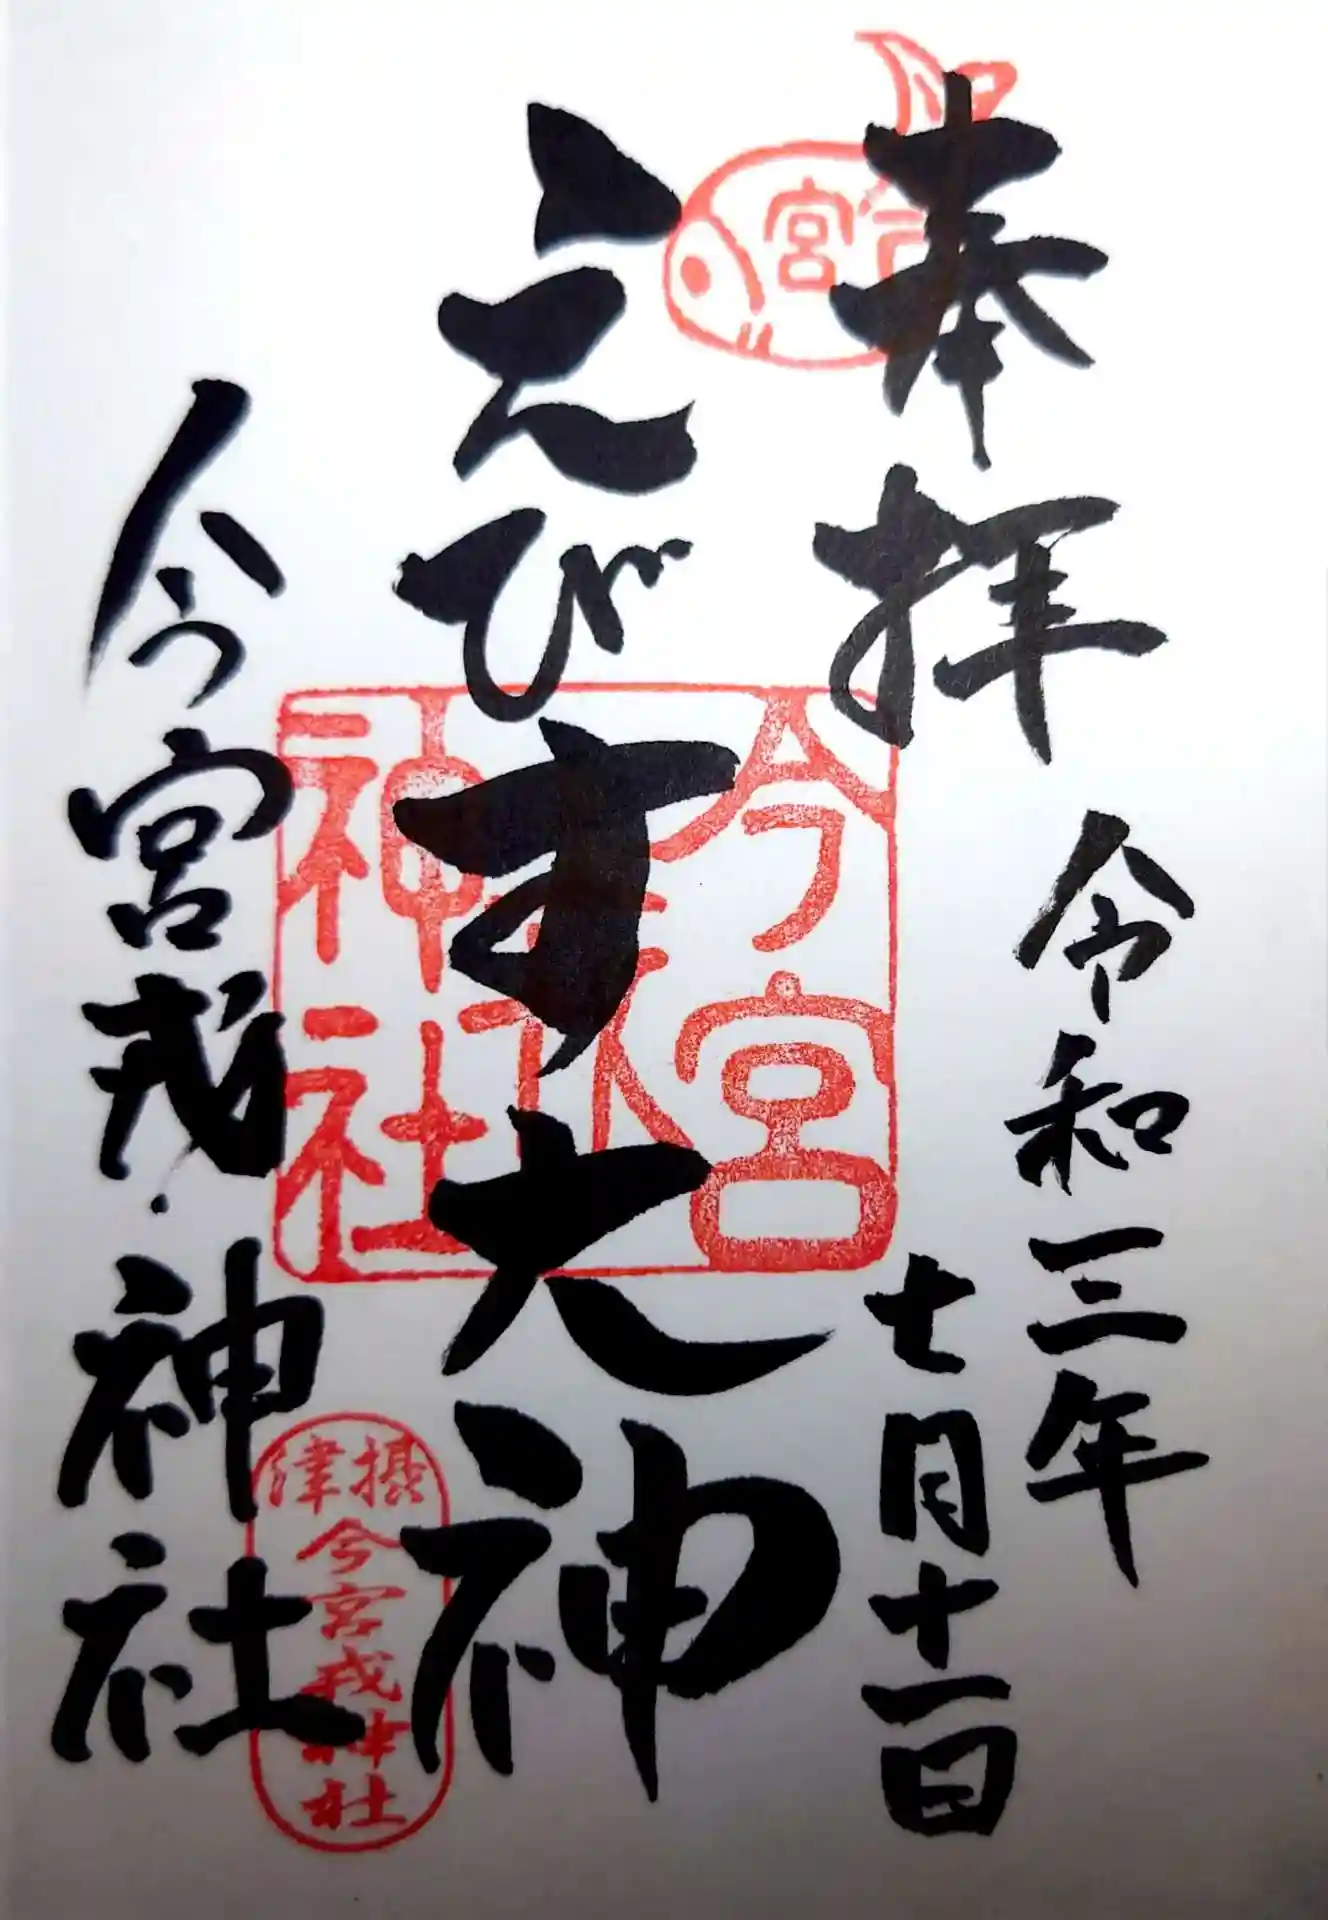 奉拝
令和三年
七月十一日
えびす大神
今宮戎神社
宮
今宮
戎
神社
摂津
今宮戎神社